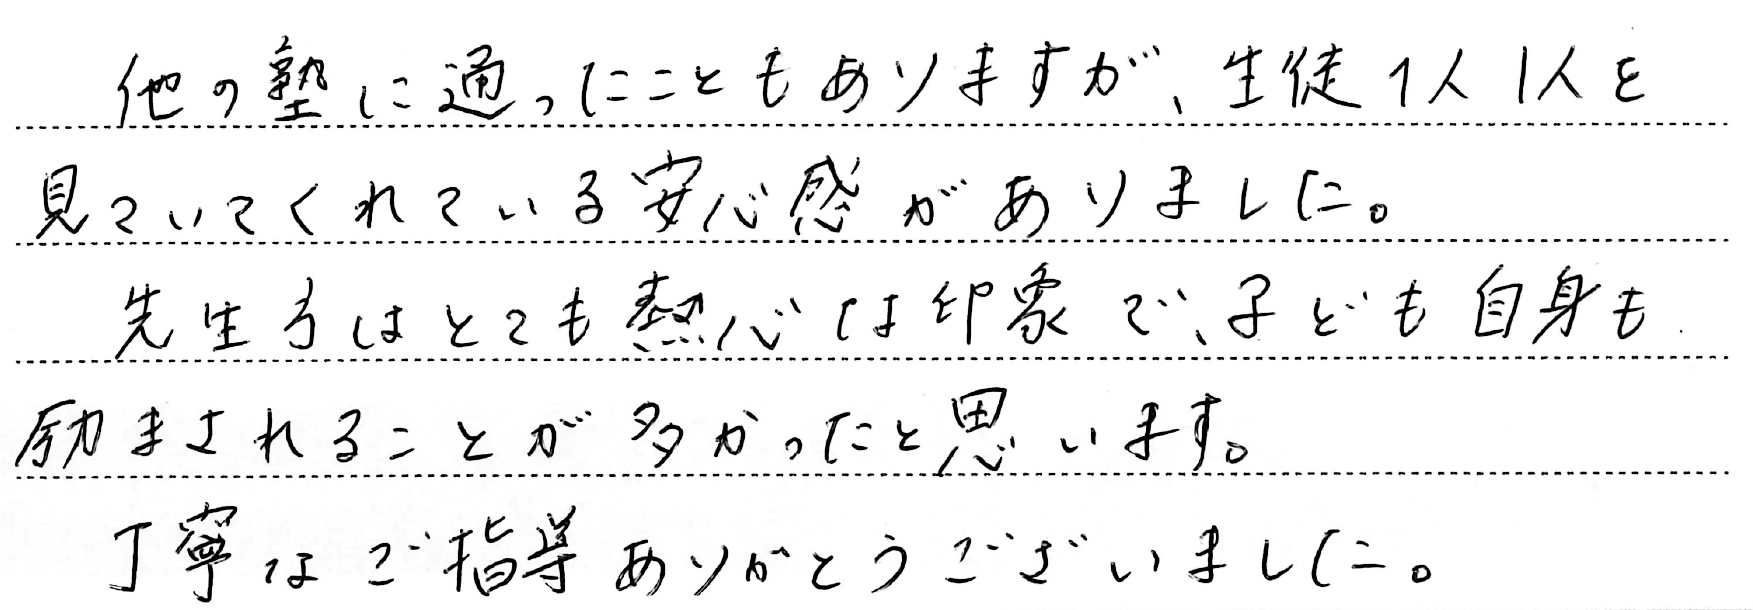 他の塾に通ったこともありますが、生徒1人1人を
見ていてくれている安心感がありました。
先生方はとても熱心な印象で、子ども自身も
励まされることが多かったと思います。
丁寧なご指導ありがとうございました。